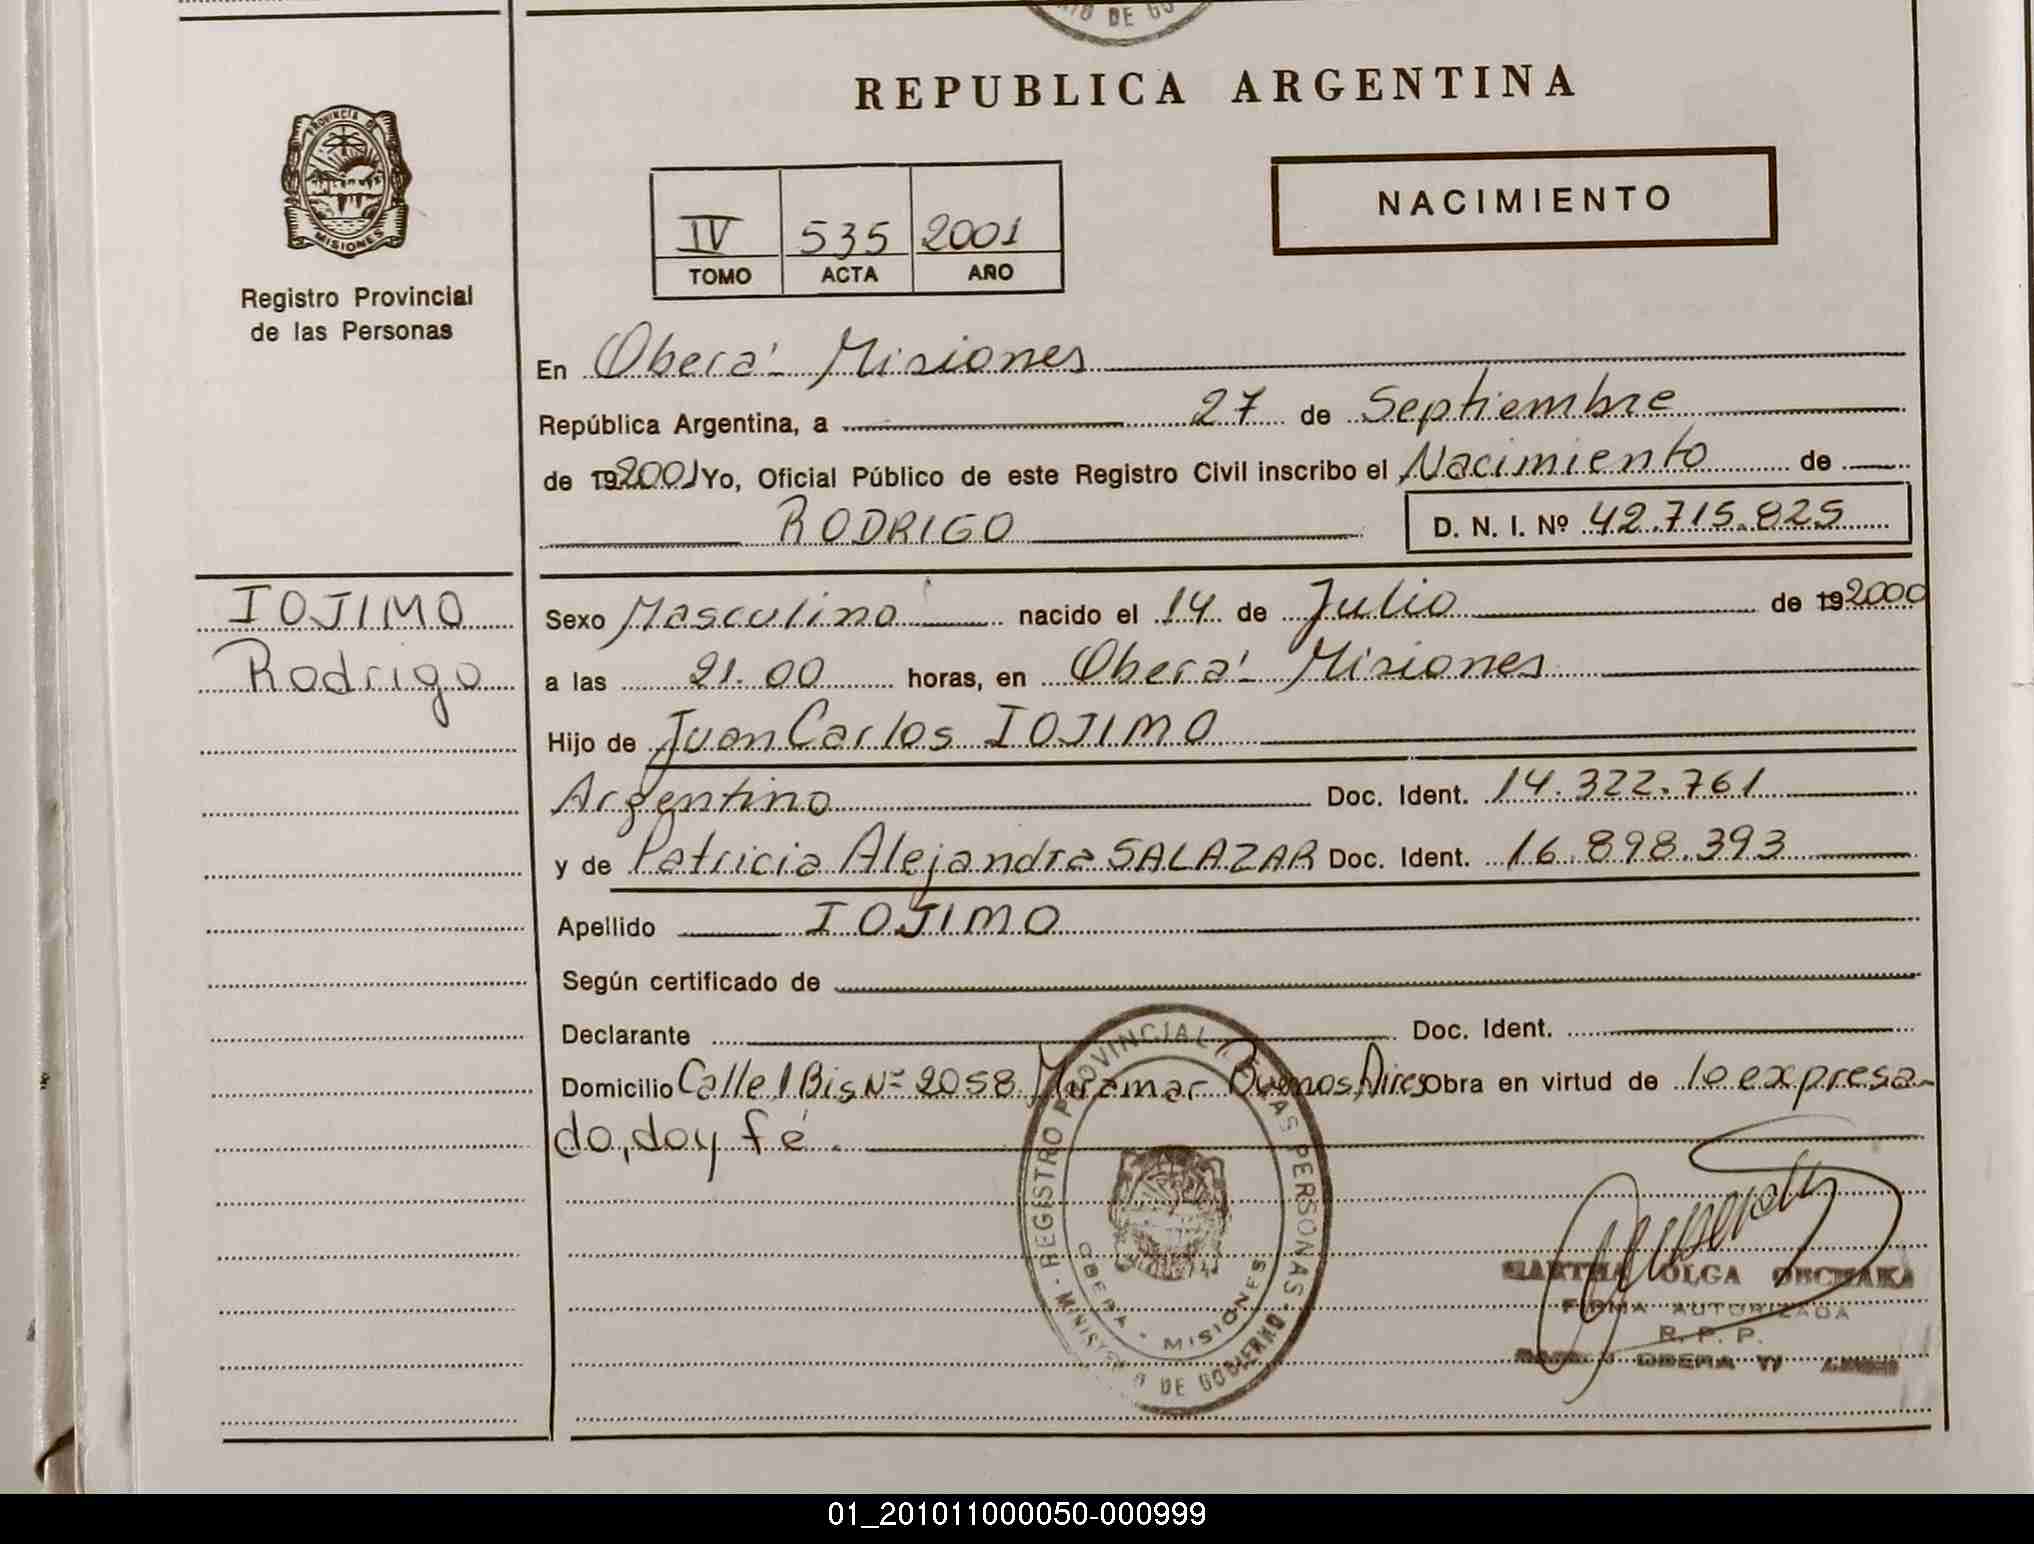 REPUBLICA ARGENTINA
PROVINCIA DE
MISIONES
Registro Provincial
de las Personas
IV 535 2001
TOMO ACTA AÑO
NACIMIENTO
En Oberá - Misiones
República Argentina, a 27 de Septiembre
de 192001 Yo, Oficial Público de este Registro Civil inscribo el Nacimiento de
RODRIGO D. N. I. Nº 42.715.825
IOJIMO
Rodrigo
Sexo Masculino nacido el 14 de Julio de 192000
a las 21.00 horas, en Oberá - Misiones
Hijo de Juan Carlos IOJIMO
Argentino Doc. Ident. 14.322.761
y de Patricia Alejandra SALAZAR Doc. Ident. 16.898.393
Apellido IOJIMO
Según certificado de
Declarante Doc. Ident.
Domicilio Calle 1 Bis Nº 2058 Miramar Buenos Aires obra en virtud de lo expresa-
do, doy fé.
REGISTRO PROVINCIAL DE LAS PERSONAS
MINISTERIO DE GOBIERNO
OBERA - MISIONES
MARTHA OLGA
FIRMA AUTORIZADA
R. P. P.
OBERA
01_201011000050-000999